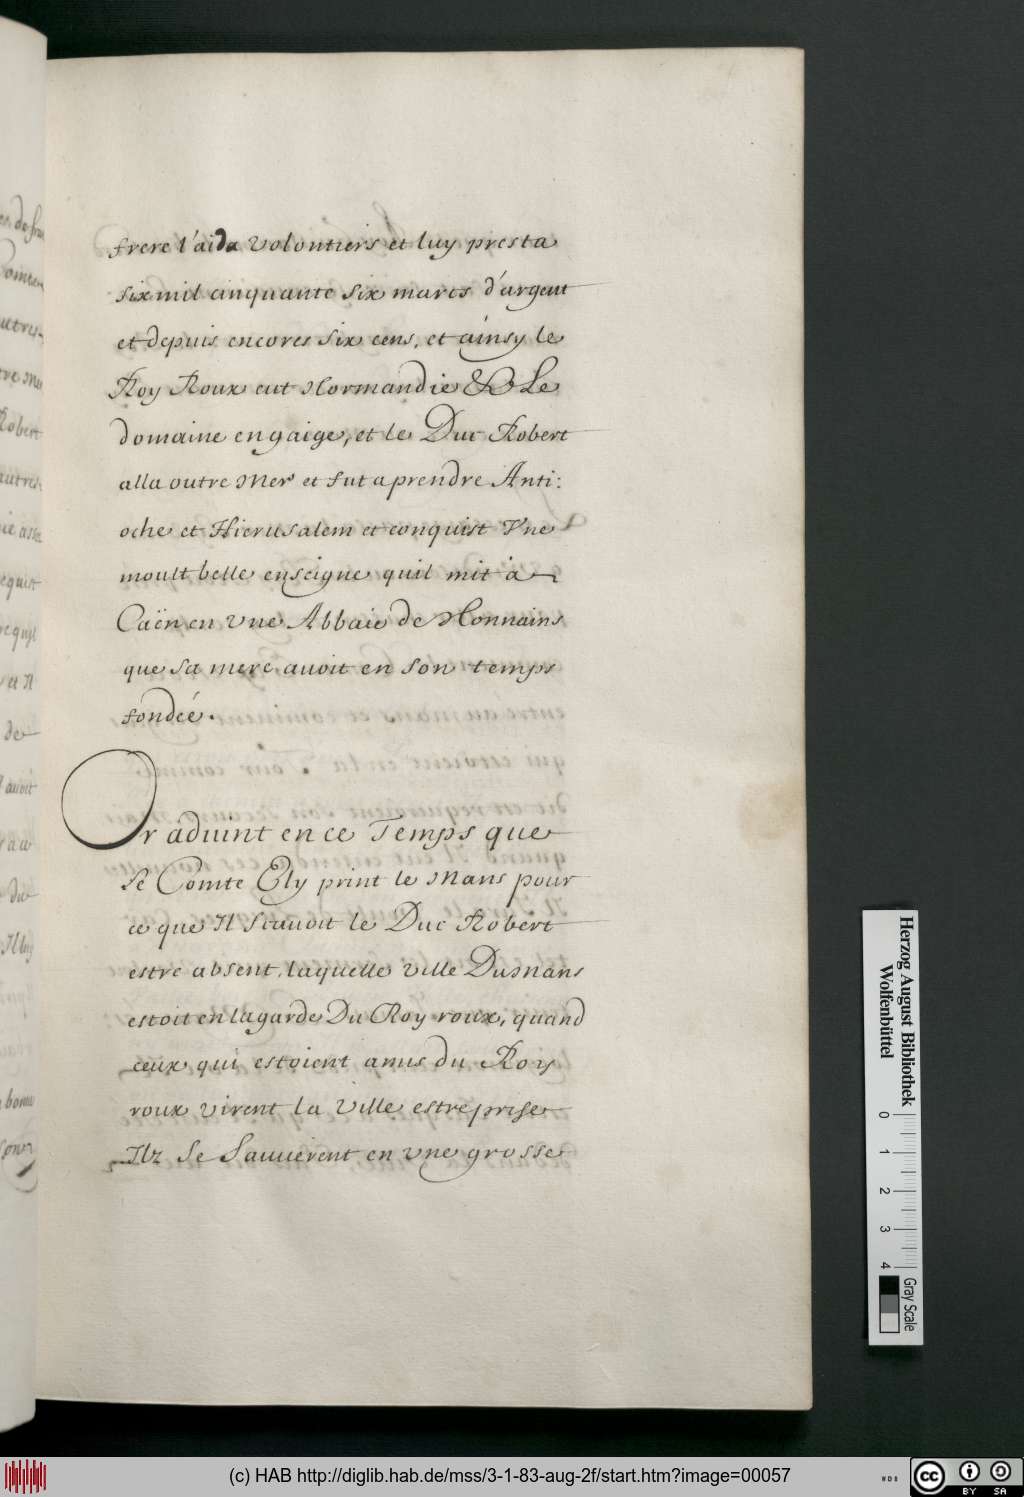 frere l'aida volontiers et luy presta
six mil cinquante six marcs d'argent
et depuis encores six cens, et ainsy le
Roy Roux eut Normandie & Le
domaine en gaige, et le Duc Robert
alla outre Mer et fut a prendre Anti:
oche et Hierusalem et conquist Vne
moult belle enseigne quil mit à
Caën en vne Abbaie de Nonnains
que sa mere auoit en son temps
fondée.
Or aduint en ce Temps que
Le Comte Ely print le Mans pour
ce que Il Scauoit le Duc Robert
estre absent, laquelle ville Du Mans
estoit en la garde Du Roy roux, quand
ceux qui estoient amis du Roy
roux virent la Ville estre prise
Ilz se Sauuerent en vne grosse
Herzog August Bibliothek
Wolfenbüttel
0 1 2 3 4
Gray Scale
(c) HAB http://diglib.hab.de/mss/3-1-83-aug-2f/start.htm?image=00057
cc BY SA